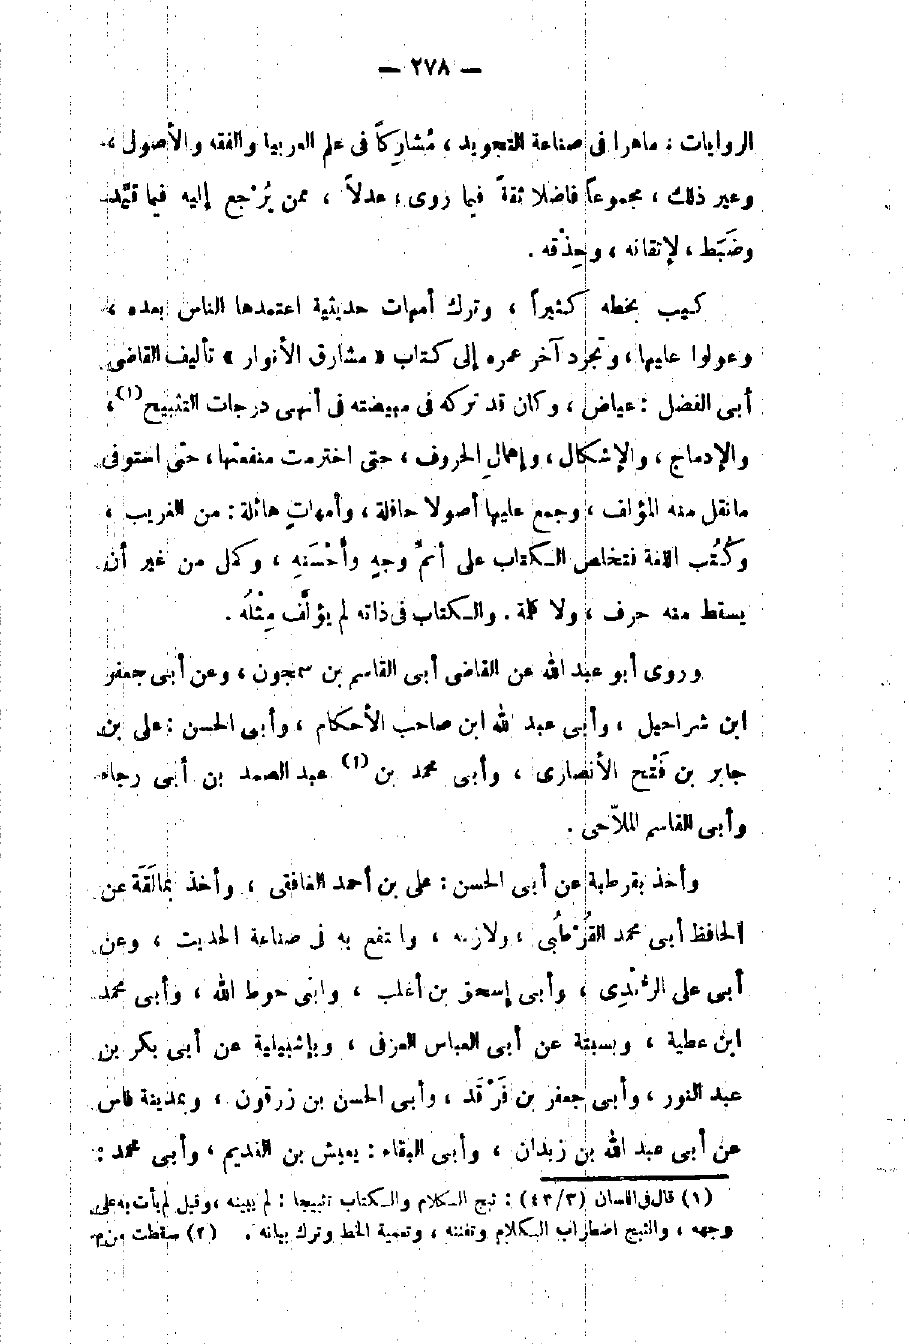 — ٢٧٨ —
الروايات ؛ ماهرا فى صناعة التجويد ، مُشارِكاً فى علم العربية والفقه والأصول ،
وغير ذلك ، مجموعاً فاضلا ثقةً فيما روى ، عدلاً ، ممن يُرْجع إليه فيما قيَّد
وضَبَط ، لإتقانه ، وحِذْقه .
كتب بخطه كثيراً ، وترك أمهات حديثية اعتمدها الناس بعده ،
وعولوا عليها ، وتجرد آخر عمره إلى كتاب « مشارق الأنوار » تأليف القاضى
أبى الفضل : عياض ، وكان قد تركه فى مبيضته فى أنهى درجات التثبيج (١) ،
والإدماج ، والإشكال ، وإهمالِ الحروف ، حتى اخترمت منفعتها ، حتى استوفى
مانقل منه المؤلف ، وجمع عليها أصولا حافلة ، وأمهاتٍ هائلة : من الغريب ،
وكُتُب اللغة فتخلص الكتاب على أتمّ وجهٍ وأَحْسَنهِ ، وكمل من غير أن
يسقط منه حرف ، ولا كلمة . والكتاب فى ذاته لم يؤلَّف مِثْلُه .
وروى أبو عبد الله عن القاضى أبى القاسم بن سمجون ، وعن أبى جعفر
ابن شراحيل ، وأبى عبد الله ابن صاحب الأحكام ، وأبى الحسن : على بن
جابر بن فَتْح الأنصارى ، وأبى محمد بن (١) عبد الصمد بن أبى رجاء
وأبى القاسم الملاّحى .
وأخذ بقرطبة عن أبى الحسن : على بن أحمد الغافقى ، وأخذ بمالَقَة عن
الحافظ أبى محمد القُرْطُبى ، ولازمه ، وانتفع به فى صناعة الحديث ، وعن
أبى على الرُّنْدِى ، وأبى إسحق بن أغلب ، وابنى حوط الله ، وأبى محمد
ابن عطية ، وبسبتة عن أبى العباس العزفى ، وبإشبيلية عن أبى بكر بن
عبد النور ، وأبى جعفر بن فَرْقَد ، وأبى الحسن بن زرقون ، وبمدينة فاس
عن أبى عبد الله بن زيدان ، وأبى البقاء : يعيش بن القديم ، وأبى محمد :
(١) قال فى اللسان (٤٣/٣) : ثبج الكلام والكتاب تثبيجا : لم يبينه ، وقيل لم يأت به على
وجهه ، والثبج اضطراب الكلام وتفننه ، وتعمية الخط وترك بيانه . (٢) سقطت من م